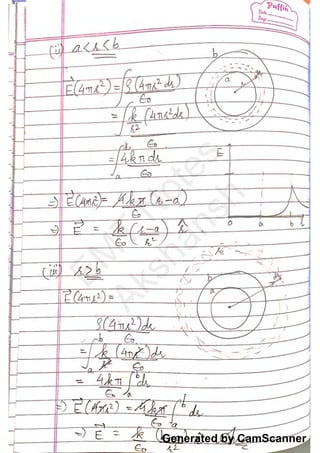 Puffin
Date
Page
(ii) a<r<b
E⃗(4πr²) = ∫ρ(4πr²dr)
ε₀
= ∫k/r² (4πr²dr)
ε₀
= ∫ₐ 4kπ dr
ε₀
⇒ E⃗(4πr²) = 4kπ/ε₀ (r-a)
⇒ E⃗ = k/ε₀ ((r-a)/r²) r̂
b
a
E
0 a b
(iii) r>b
E⃗(4πr²) =
ρ(4πr²)dr
ε₀
= ∫ₐᵇ k/r² (4πr²)dr
ε₀
= 4kπ/ε₀ ∫ₐᵇ dr
⇒ E⃗(4πr²) = 4kπ/ε₀ ∫ₐᵇ dr
⇒ E⃗ = k/ε₀ (b
b
a
Notes
Akshansh
Generated by CamScanner